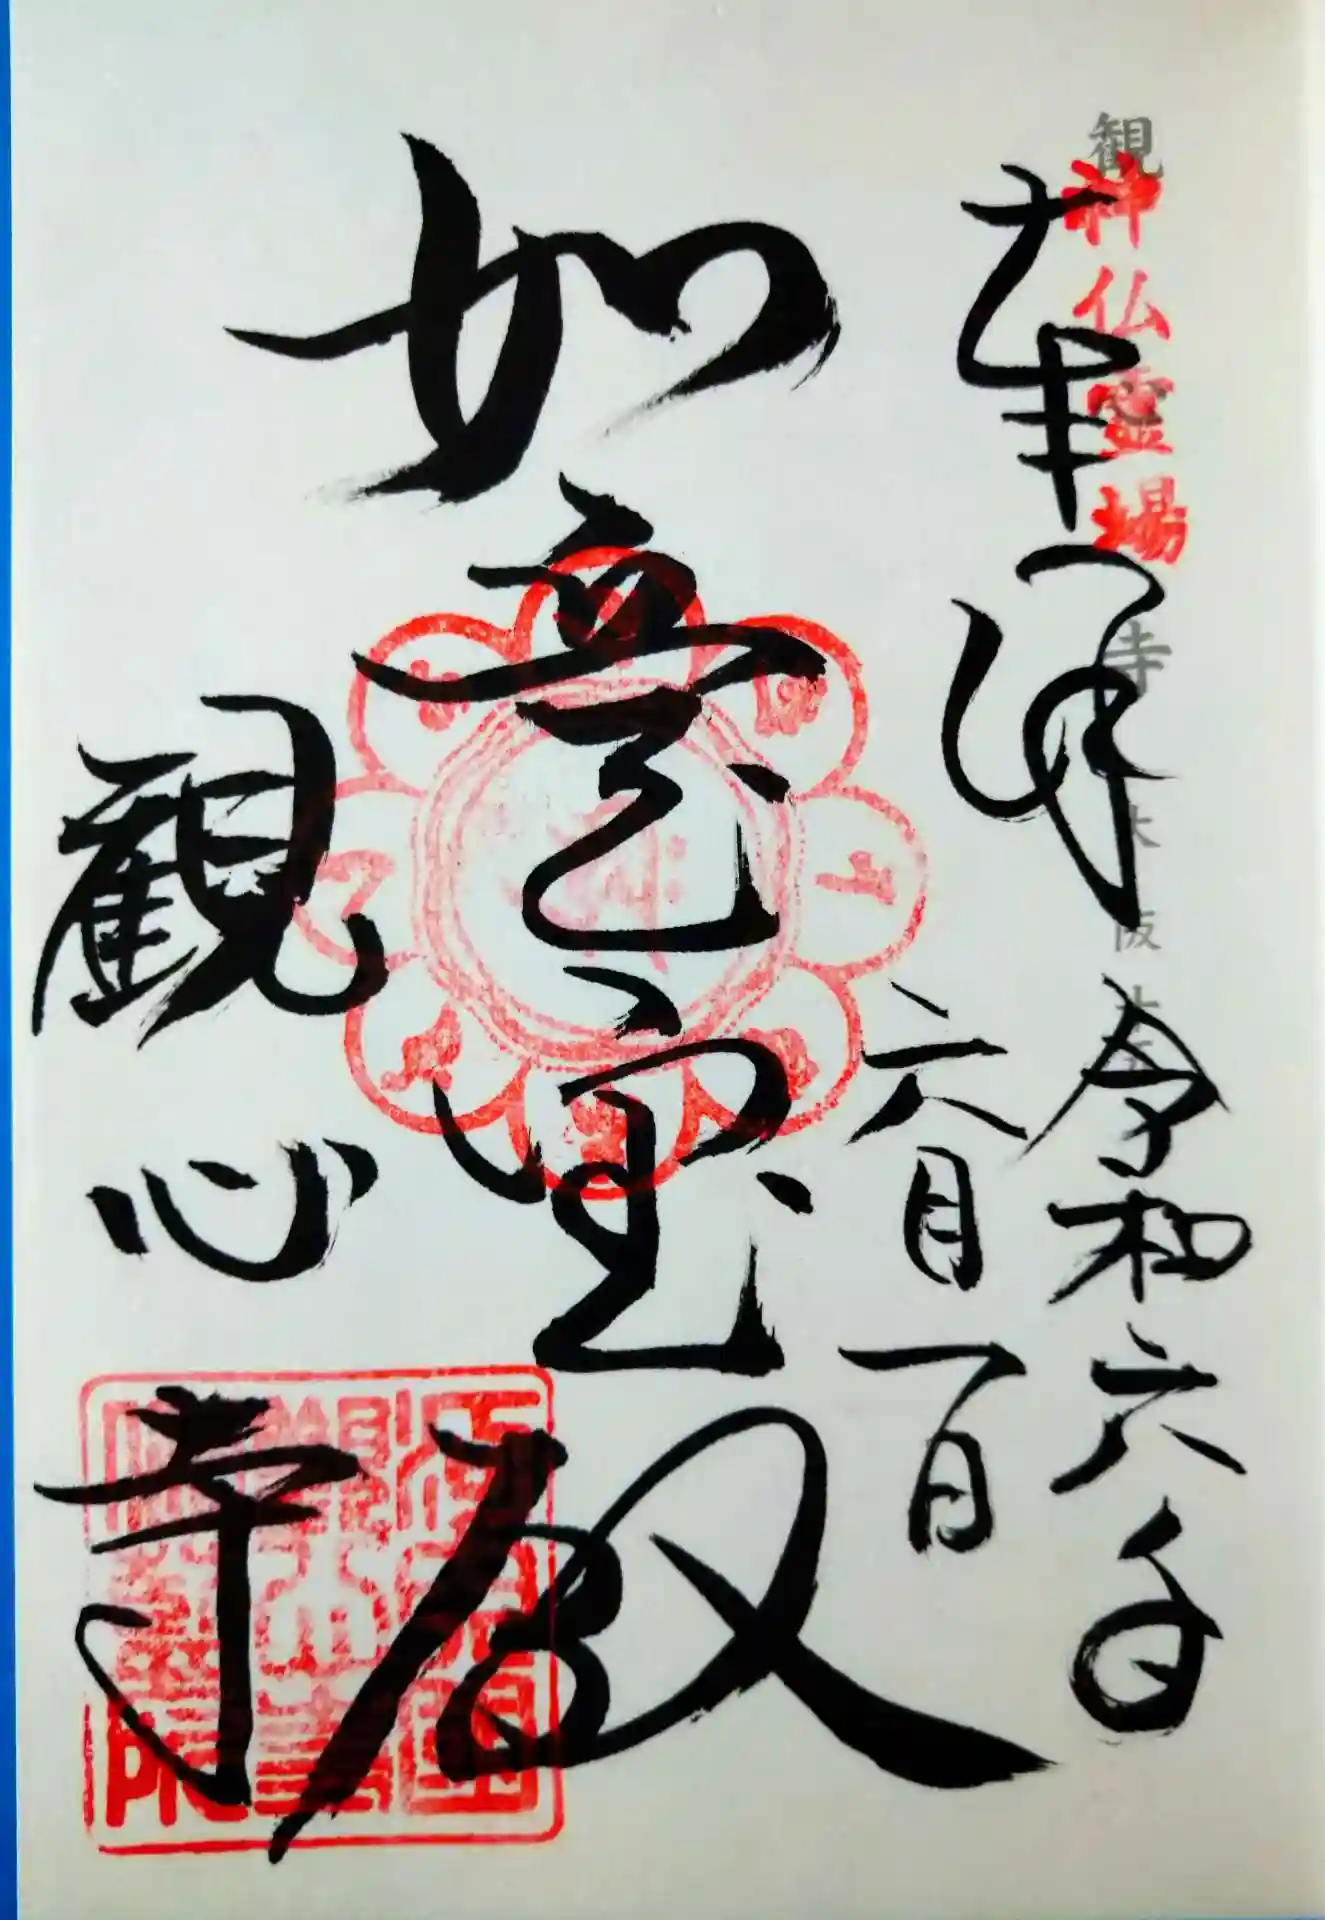 観心寺 大阪
神仏霊場
奉拝
令和六年
六月一日
如意宝殿
観心寺